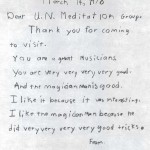 March 14, 1978
Dear U.N. Meditation Group
Thank you for coming
to visit.
You are great musicians
You are very very very very good.
And the magic man is good.
I like it because it was interesting.
I like the magic man because he
did very very very very good tricks.
From